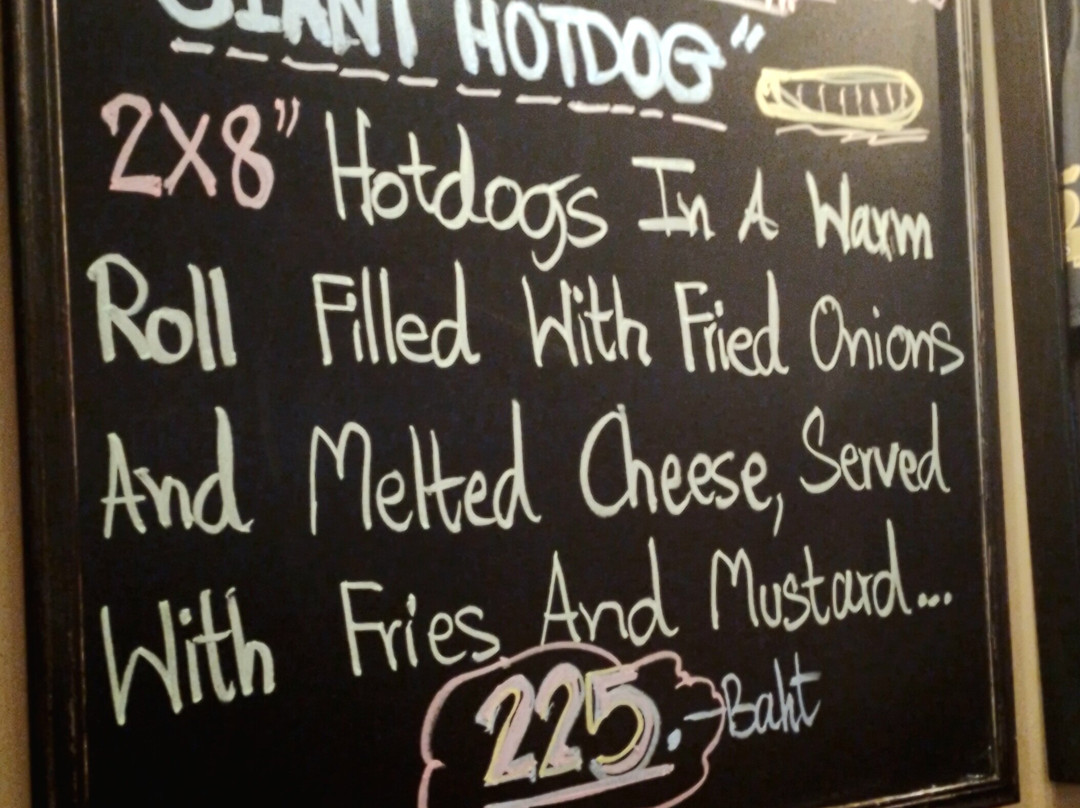 GIANT HOTDOG"
2X8" Hotdogs In A Warm
Roll Filled With Fried Onions
And Melted Cheese, Served
With Fries And Mustard...
225.-Baht